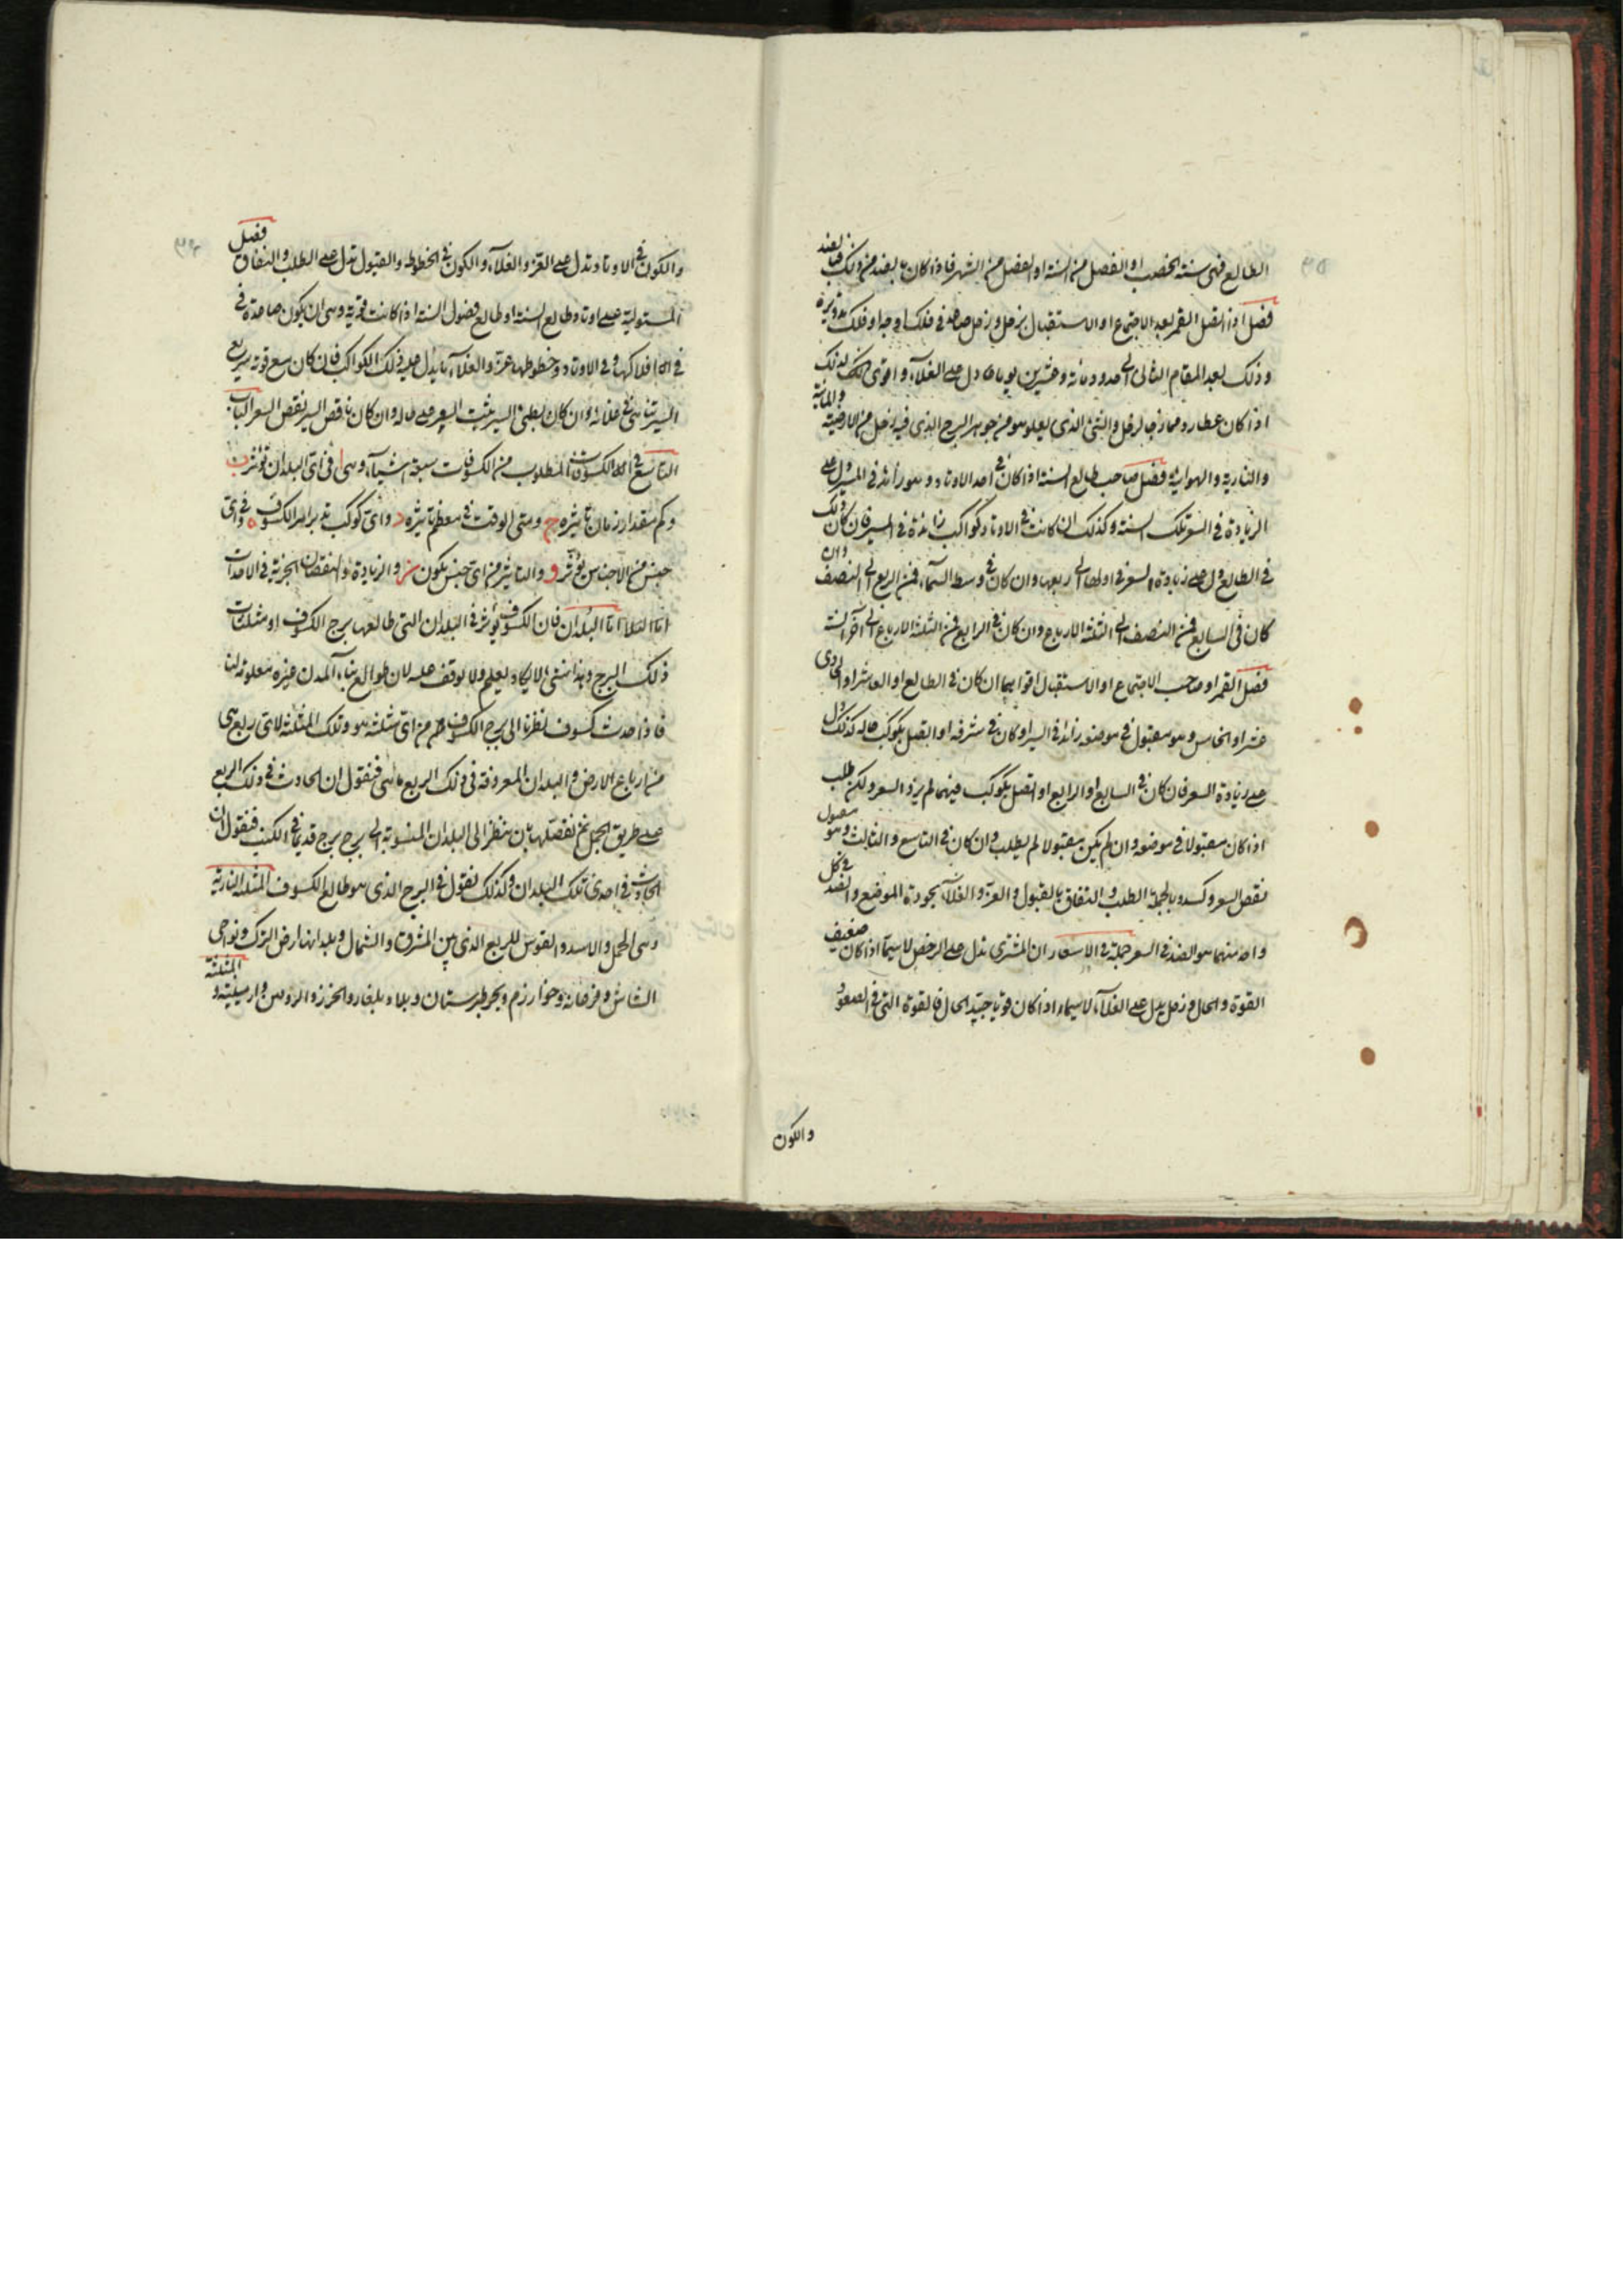 الطالع فهى سنة الخصب او الفصل من السنة او الفصل من الشهر فاذا كان بالضد من ذلك فبالضد
فصل اذا اتصل القمر بعد الاجتماع او الاستقبال بزحل وزحل صاعد فى فلك اوجه او فلك تدويره
وذلك بعد المقام الثانى الى حدود مائة وعشرين يوما دل على الغلآء واقوى لذلك
اذا كان عطارد ممازجا لزحل والشئ الذى يعلو هو من جوهر البرج الذى فيه زحل من الارضية والمائية
والنارية والهوائية فصل صاحب طالع السنة اذا كان فى احد الاوتاد وهو زائد فى المسير دل على
الزيادة فى السعر تلك السنة وكذلك ان كانت فى الاوتاد كواكب زائدة فى المسير فان كان ذلك
فى الطالع دل على زيادة السعر فى اولها الى ربعها وان كان فى وسط السمآء فمن الربع الى النصف وان
كان فى السابع فمن النصف الى الثلثة الارباع وان كان فى الرابع فمن الثلثة الارباع الى آخر السنة
فصل القمر او صاحب الاجتماع او الاستقبال اقواهما ان كان فى الطالع او العاشر او الحادى
عشر او الخامس وهو مقبول فى موضعه زائد فى السير او كان فى شرفه او اتصل بكوكب حاله كذلك دل
على زيادة السعر فان كان فى السابع او الرابع او اتصل بكوكب فيهما لم يزد السعر ولكن طلب
اذا كان مقبولا فى موضعه وان لم يكن مقبولا لم يطلب وان كان فى التاسع والثالث وهو مقبول
نقص السعر وكسد وبالجملة الطلب والنفاق بالقبول والعزة والغلآء بجودة الموضع والضد فى كل
واحد منهما هو الضد فى السعر جملة فى الاسعار ان المشترى يدل على الرخص لا سيما اذا كان ضعيف
القوة والحال وزحل يدل على الغلآء لا سيما اذا كان قويا جيد الحال فالقوة التى فى الصعود
والكون
والكون فى الاوتاد تدل على العز والغلآء والكون فى الحظوظ والقبول تدل على الطلب والنفاق فصل
المستولية على اوتاد طالع السنة او طالع فصول السنة اذا كانت قوية وهى ان يكون صاعدة فى
افلاكها وفى الاوتاد وحظوظها عزة والغلآء ما يدل عليه ذلك الكواكب فان كان مع قوته سريع
السير تناهى فى غلائه وان كان بطئ السير يثبت السعر على حاله وان كان ناقص السير نقص السعر الباب
التاسع فى الكسوفات المطلوب من الكسوفات سبعة اشيآء وهى ا فى اى البلدان تؤثر ب
وكم مقدار زمان تاثيره ج ومتى الوقت فى معظم تاثيره د واى كوكب تدبر امر الكسوف ه وفى اى
جنس من الاجناس يؤثر و والتاثير من اى جنس يكون ز والزيادة والنقصان الجزئية فى الاحداث
اما البلدان فان الكسوف يؤثر فى البلدان التى طالعها برج الكسوف او مثلثات
ذلك البرج وهذا شئ لا يكاد يعلم ولا يوقف عليه لان طوالع بنآء المدن غيره معلومة لنا
فاذا حدث كسوف نظرنا الى برج الكسوف من اى مثلثة هو وتلك المثلثة لاى ربع هى
من ارباع الارض والبلدان المعروفة فى ذلك الربع ما هى فنقول ان الحادث فى ذلك الربع
على طريق الجمل ثم نفصلها بان ننظر الى البلدان المنسوبة الى برج برج قديما فى الكتب فنقول ان
الحادث فى احدى تلك البلدان وكذلك نقول فى البرج الذى هو طالع الكسوف المثلثة النارية
وهى الحمل والاسد والقوس للربع الذى بين المشرق والشمال وبلدانها ارض الترك ونواحى
الشاش وفرغانة وخوارزم وبحر طبرستان وبلاد بلغار والخزر والروس وارمينية و المثلثة